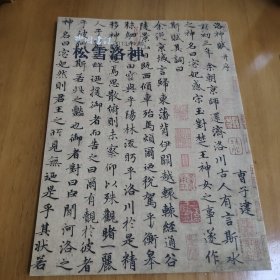 松雪洛神
洛神賦 并序
曹子建
初三年余朝京師還濟洛川古人有言斯水
神名曰宓妃感宋玉對楚王神女之事遂作
斯賦其詞曰
余從京城言歸東藩背伊闕越轘轅經通谷
陵景山日既西傾車殆馬煩爾迺稅駕乎蘅皋
田容與乎楊林流眄乎洛川於是精
移神焉思散俯則未察仰以殊觀睹一麗
人于迺援御者而告之曰爾有覿於彼者
乎之豔也御者對曰臣聞河洛之
神名曰宓妃然則君王之所見無迺是乎其狀若